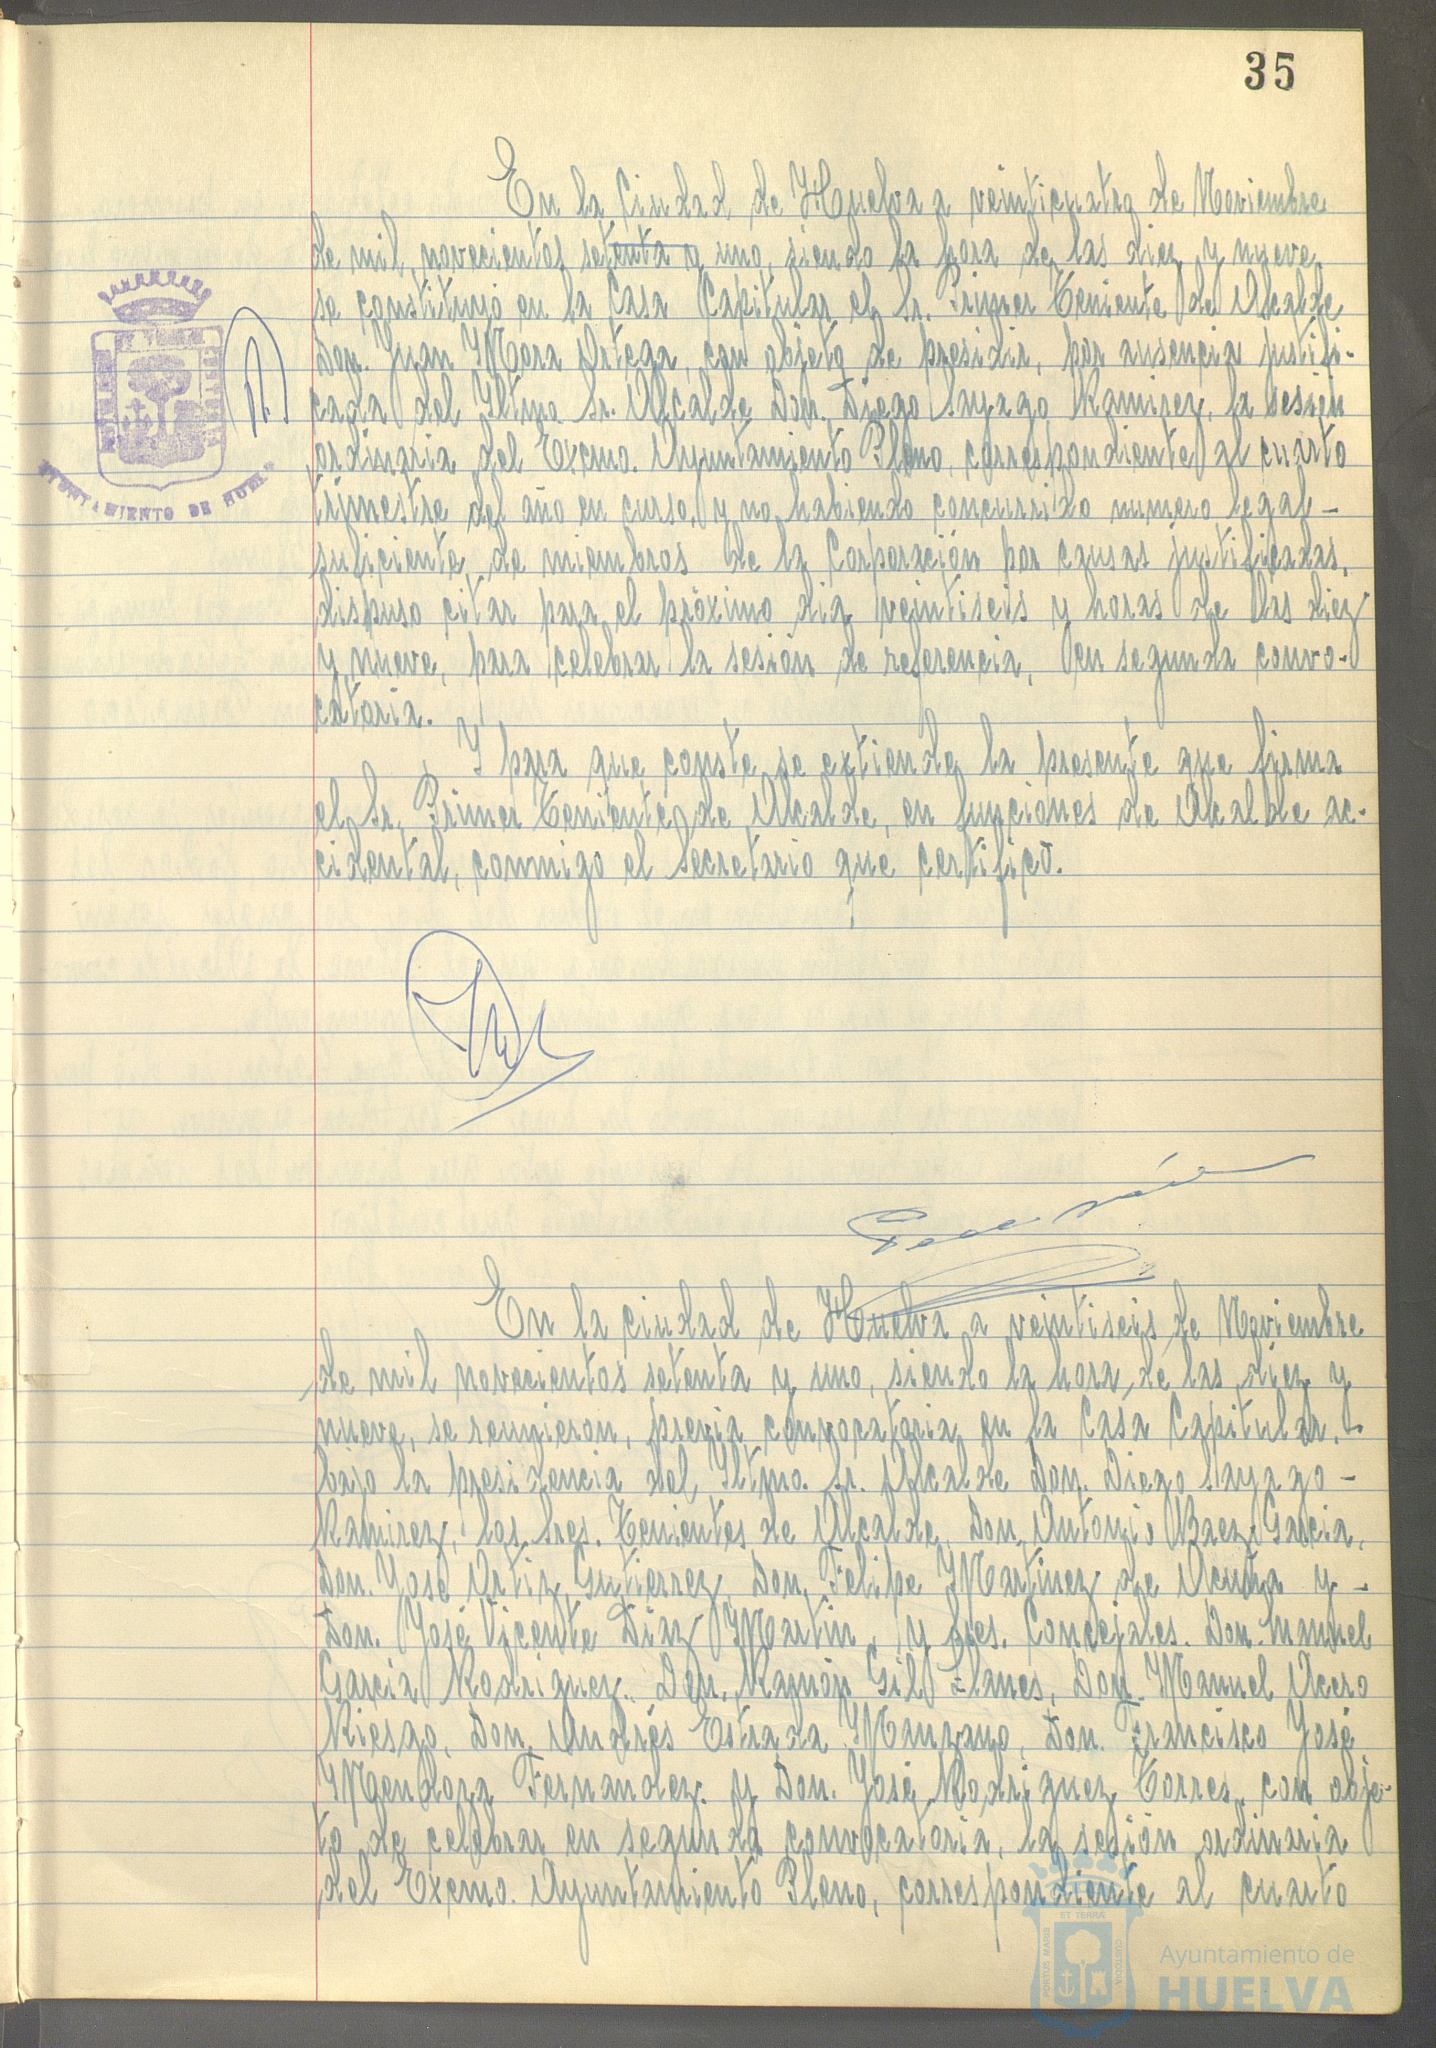 35
En la Ciudad de Huelva a veinticuatro de Noviembre
de mil novecientos setenta y uno, siendo la hora de las diez y nueve,
se constituyó en la Casa Capitular el Sr. Primer Teniente de Alcalde
Don. Juan Mora Ortega, con objeto de presidir, por ausencia justifi-
cada del Iltmo. Sr. Alcalde Don. Diego Sayago Ramirez, la sesión
ordinaria del Excmo. Ayuntamiento Pleno, correspondiente al cuarto
trimestre del año en curso, y no habiendo concurrido numero legal -
suficiente de miembros de la Corporación por causas justificadas,
dispuso citar para el próximo dia veintiseis y horas de las diez
y nueve, para celebrar la sesión de referencia, en segunda convo-
catoria.
Y para que conste se extiende la presente que firma
el Sr. Primer Teniente de Alcalde, en funciones de Alcalde ac-
cidental, conmigo el Secretario que certifico.
AYUNTAMIENTO DE HUELVA
En la ciudad de Huelva a veintiseis de Noviembre
de mil novecientos setenta y uno, siendo la hora de las diez y
nueve, se reunieron, previa convocatoria en la Casa Capitular, -
bajo la presidencia del Iltmo. Sr. Alcalde Don. Diego Sayago -
Ramirez, los Sres. Tenientes de Alcalde, Don. Antonio Baez Garcia,
Don. José Ortiz Gutierrez, Don. Felipe Martinez de Acuña y -
Don. José Vicente Diaz Martin, y Sres. Concejales. Don. Manuel
Garcia Rodriguez. Don. Ramón Gil Llanes, Don. Manuel Acero
Riesgo, Don. Andrés Estrada Manzano, Don. Francisco José
Mendoza Fernandez. y Don. José Rodriguez Torres, con obje-
to de celebrar en segunda convocatoria, la sesión ordinaria
del Excmo. Ayuntamiento Pleno, correspondiente al cuarto
PORTUS MARIS ET TERRÆ CUSTODIA
Ayuntamiento de
HUELVA